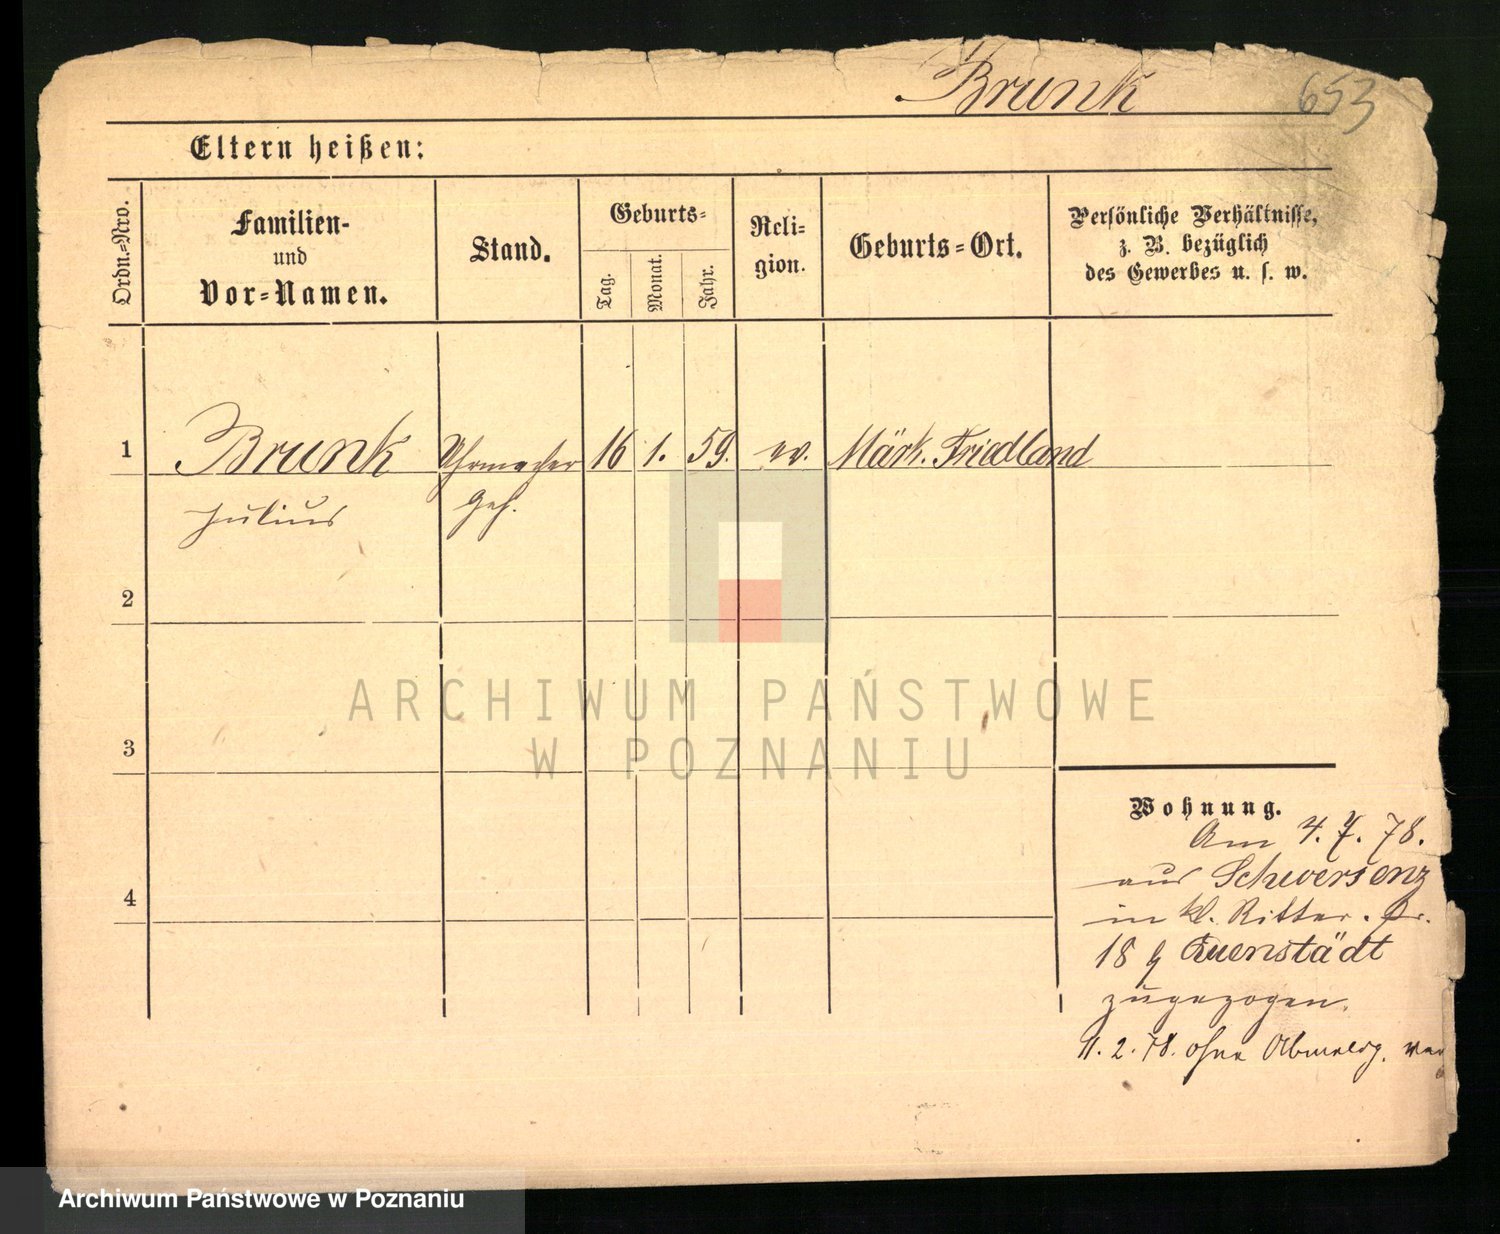 Brunk 653
Eltern heißen:
Ordn.-Nro.
Familien-
und
Vor-Namen.
Stand.
Geburts-
Tag.
Monat.
Jahr.
Reli-
gion.
Geburts-Ort.
Persönliche Verhältnisse,
z. B. bezüglich
des Gewerbes u. s. w.
1 Brunk Uhrmacher 16 1. 59. ev. Märk. Friedland
Julius Geh.
2
3
4
ARCHIWUM PAŃSTWOWE
W POZNANIU
Wohnung.
Am 4. 7. 78.
aus Schwersenz
in kl. Ritter.
18 Quenstädt
zugezogen.
11. 2. 78. ohne Abmeldg.
Archiwum Państwowe w Poznaniu